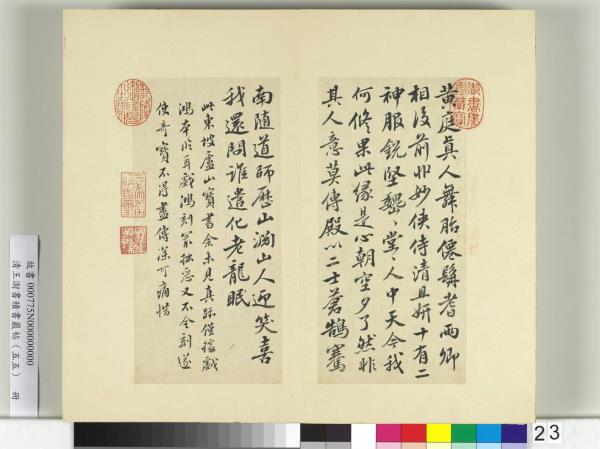 黃庭真人舞胎僊髯耆兩卿
相後前丱妙俠侍清且妍十有二
神服銳堅巍〻堂〻人中天令我
何修果此緣是心朝空夕了然非
其人意莫傳殿以二士蒼鵠騫
南隨道師歷山淵山人迎笑喜
我還問誰遣化老龍眠
此東坡盧山寶書余未見真跡僅據戲
鴻本臨耳戲鴻刻最拙惡又不全刻遂
使奇寶不得盡傳深可痛惜
故書 000775N000000000
清王澍書積書巖帖(五五) 冊
23